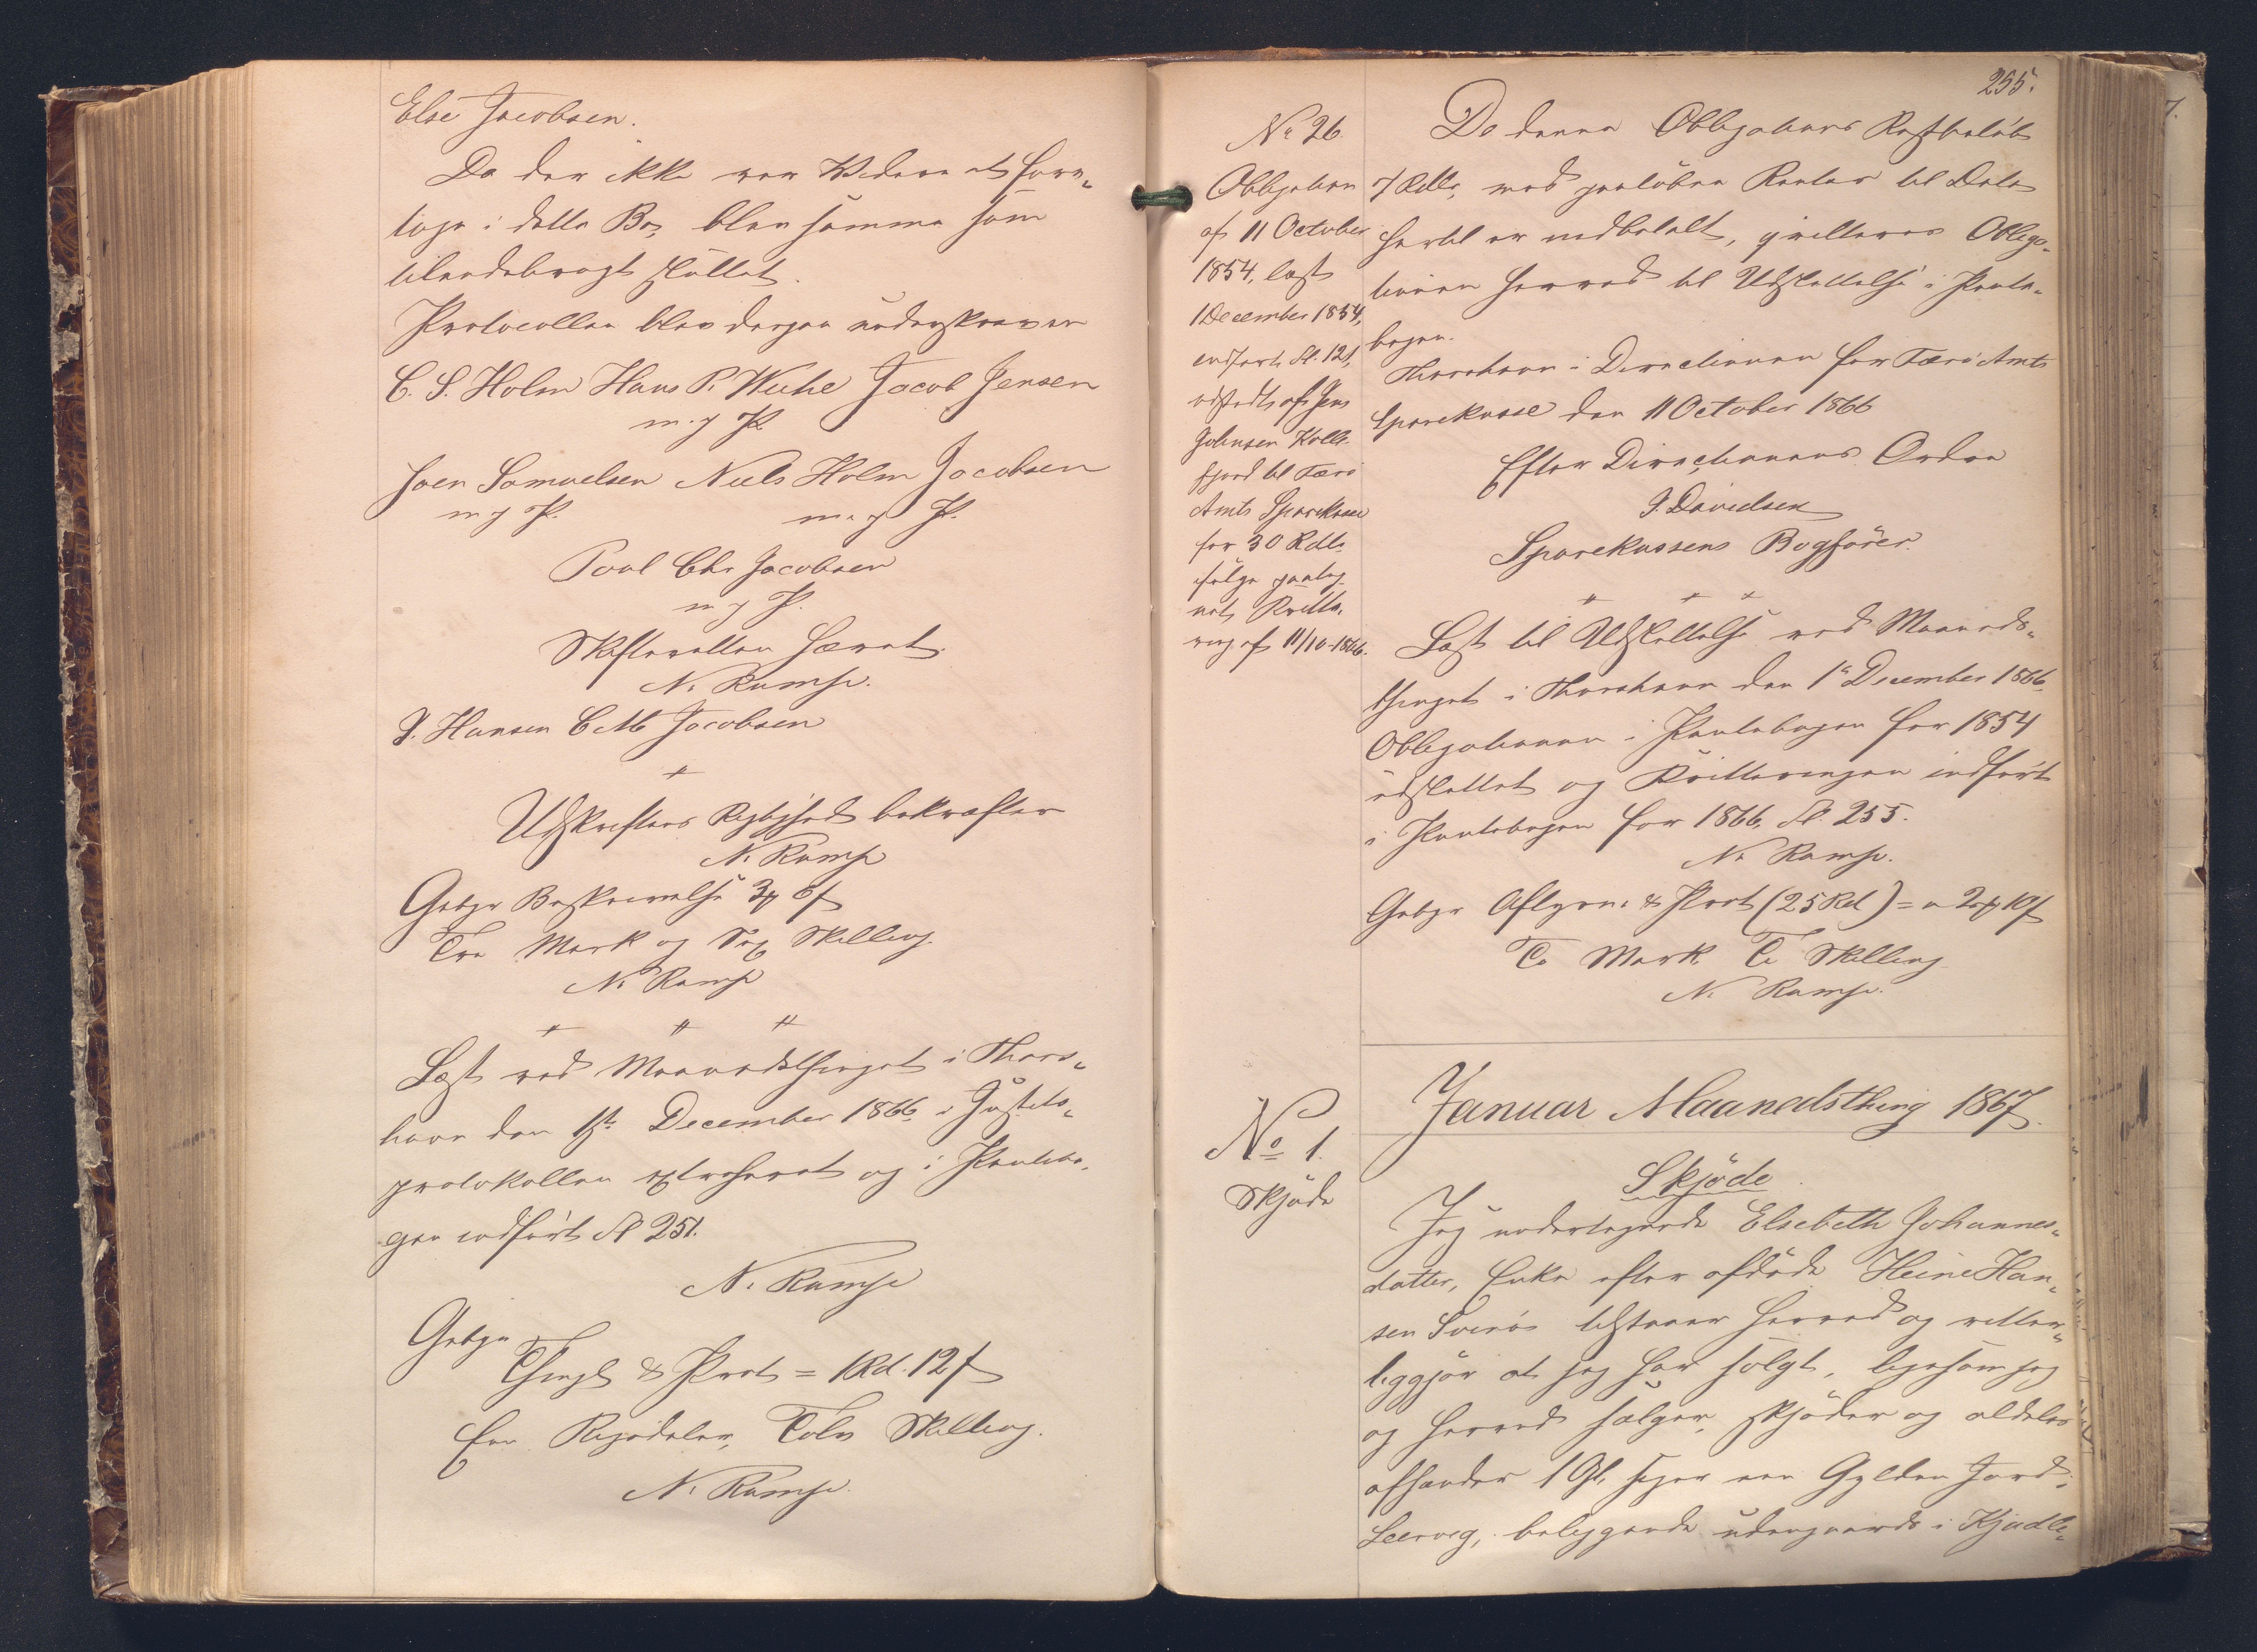 Else Jacobsen.
Da der ikke var Videre at fore-
tage i dette Bo, blev samme som
tilendebragt sluttet.
Protocollen blev derpaa underskreven
C. S. Holm Hans P. Weihe Jacob Jensen
m. f. P.
Joen Samuelsen Niels Holm Jacobsen
m f P. m. f P.
Poul Chr Jacobsen
m f P.
Skifteretten hævet.
N. Rump.
J. Hansen C M Jacobsen
Udskriftens Rigtighed bekræfter
N. Rump
Gebyr Beskrivelse 3 6
Tre Mark og Sex Skilling.
N. Rump
Læst ved Maanedsthinget i Thors-
havn den 1ste December 1866, i Justits-
protokollen extraheret og i Pantebo-
gen indført Fol 251.
N. Rump
Gebyr
Thingl & Prot = 1Rd. 12
Een Rigsdaler, Tolv Skilling.
N. Rump.
255.
No 26.
Obligation
af 11 October
1854, læst
1 December 1854,
indført Fol. 121,
udstedt af Jens
Johnsen Kolle-
fjord til Færø
Amts Sparekasse
for 30 Rdlr.
ifølge paateg-
net Kvitte-
ring af 11/10-1866.
Da denne Obligations Restbeløb
7 Rdlr, med paaløbne Renter til Dato
hertil er indbetalt, qvitteres Obliga-
tionen herved til Udslettelse i Pante-
bogen.
Thorshavn i Directionen for Færø Amts
Sparekasse den 11 October 1866
Efter Directionens Ordre
J. Davidsen
Sparekassens Bogfører.
Læst til Udslettelse ved Maaneds-
thinget i Thorshavn den 1e December 1866.
Obligationen i Pantebogen for 1854
udslettet og Kvitteringen indført
i Pantebogen for 1866, Fol. 255.
N. Rump.
Gebyr Aflysn. & Prot (25 Rd) = 2 10
To Mark Ti Skilling
N. Rump.
Januar Maanedsthing 1867.
No 1.
Skjøde
Skjøde
Jeg undertegnede Elsebeth Johannes-
datter, Enke efter afdøde Heine Han-
sen Svinø tilstaaer herved og vitter-
liggjør at jeg har solgt, ligesom jeg
og herved sælger, skjøder og aldeles
afhænder 1 Gl, siger een Gylden Jord,
Leervig, beliggende udengaards i Kjadle-